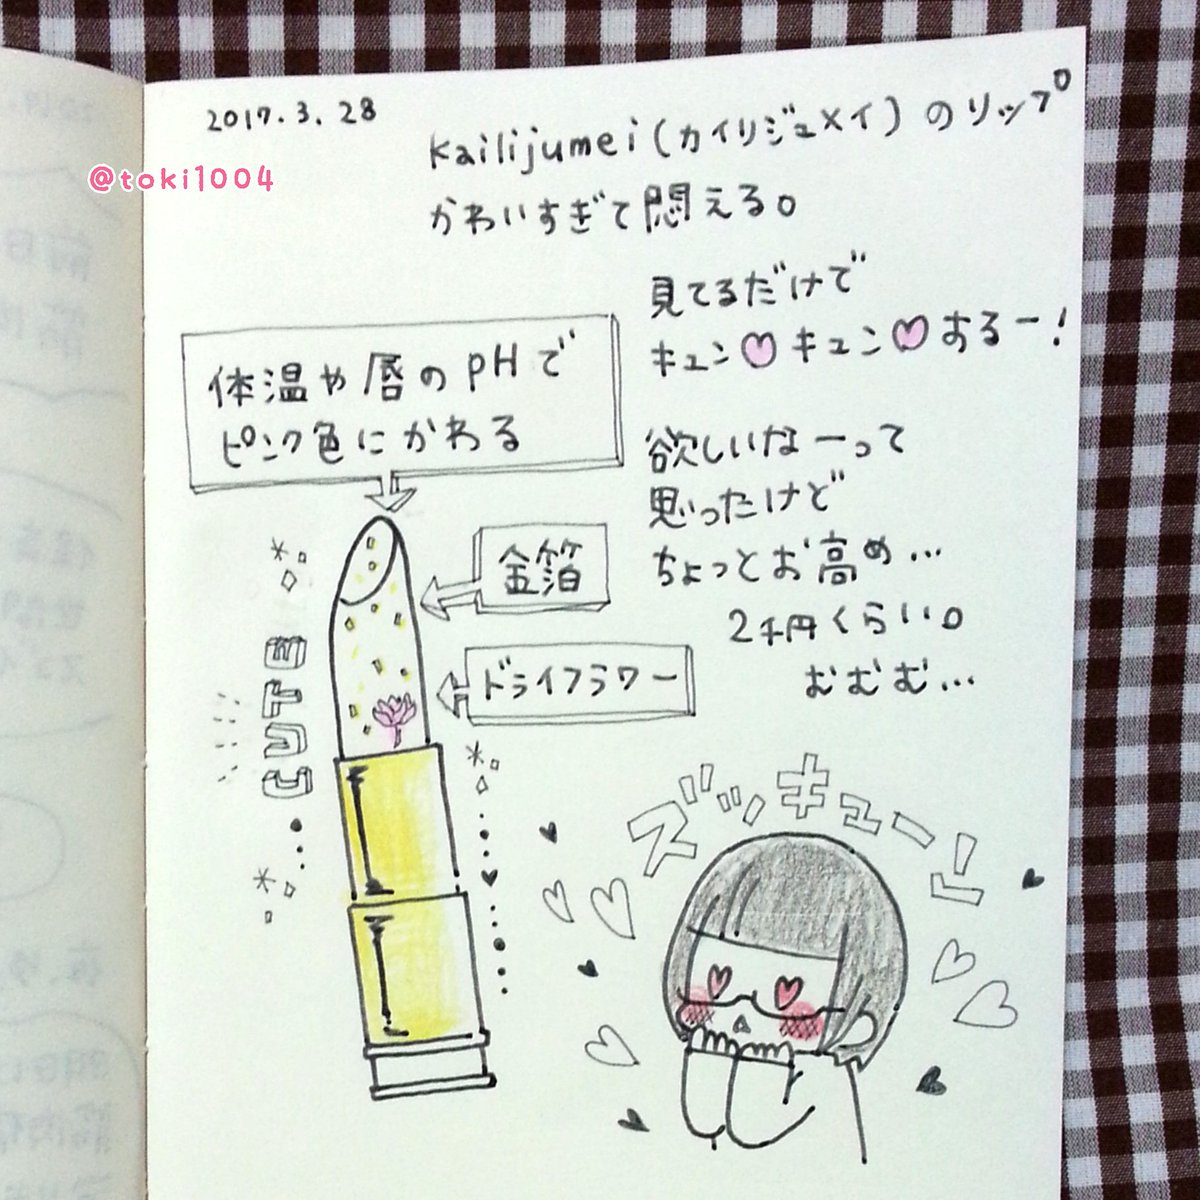 2017.3.28
@toki1004
Kailijumei(カイリジュメイ)のリップ
かわいすぎて悶える。
見てるだけで
キュン♡キュン♡するー!
体温や唇のpHで
ピンク色にかわる
欲しいなーって
思ったけど
ちょっとお高め…
2千円くらい。
むむむ…
金箔
ドライフラワー
CUTE
ズッキューン!